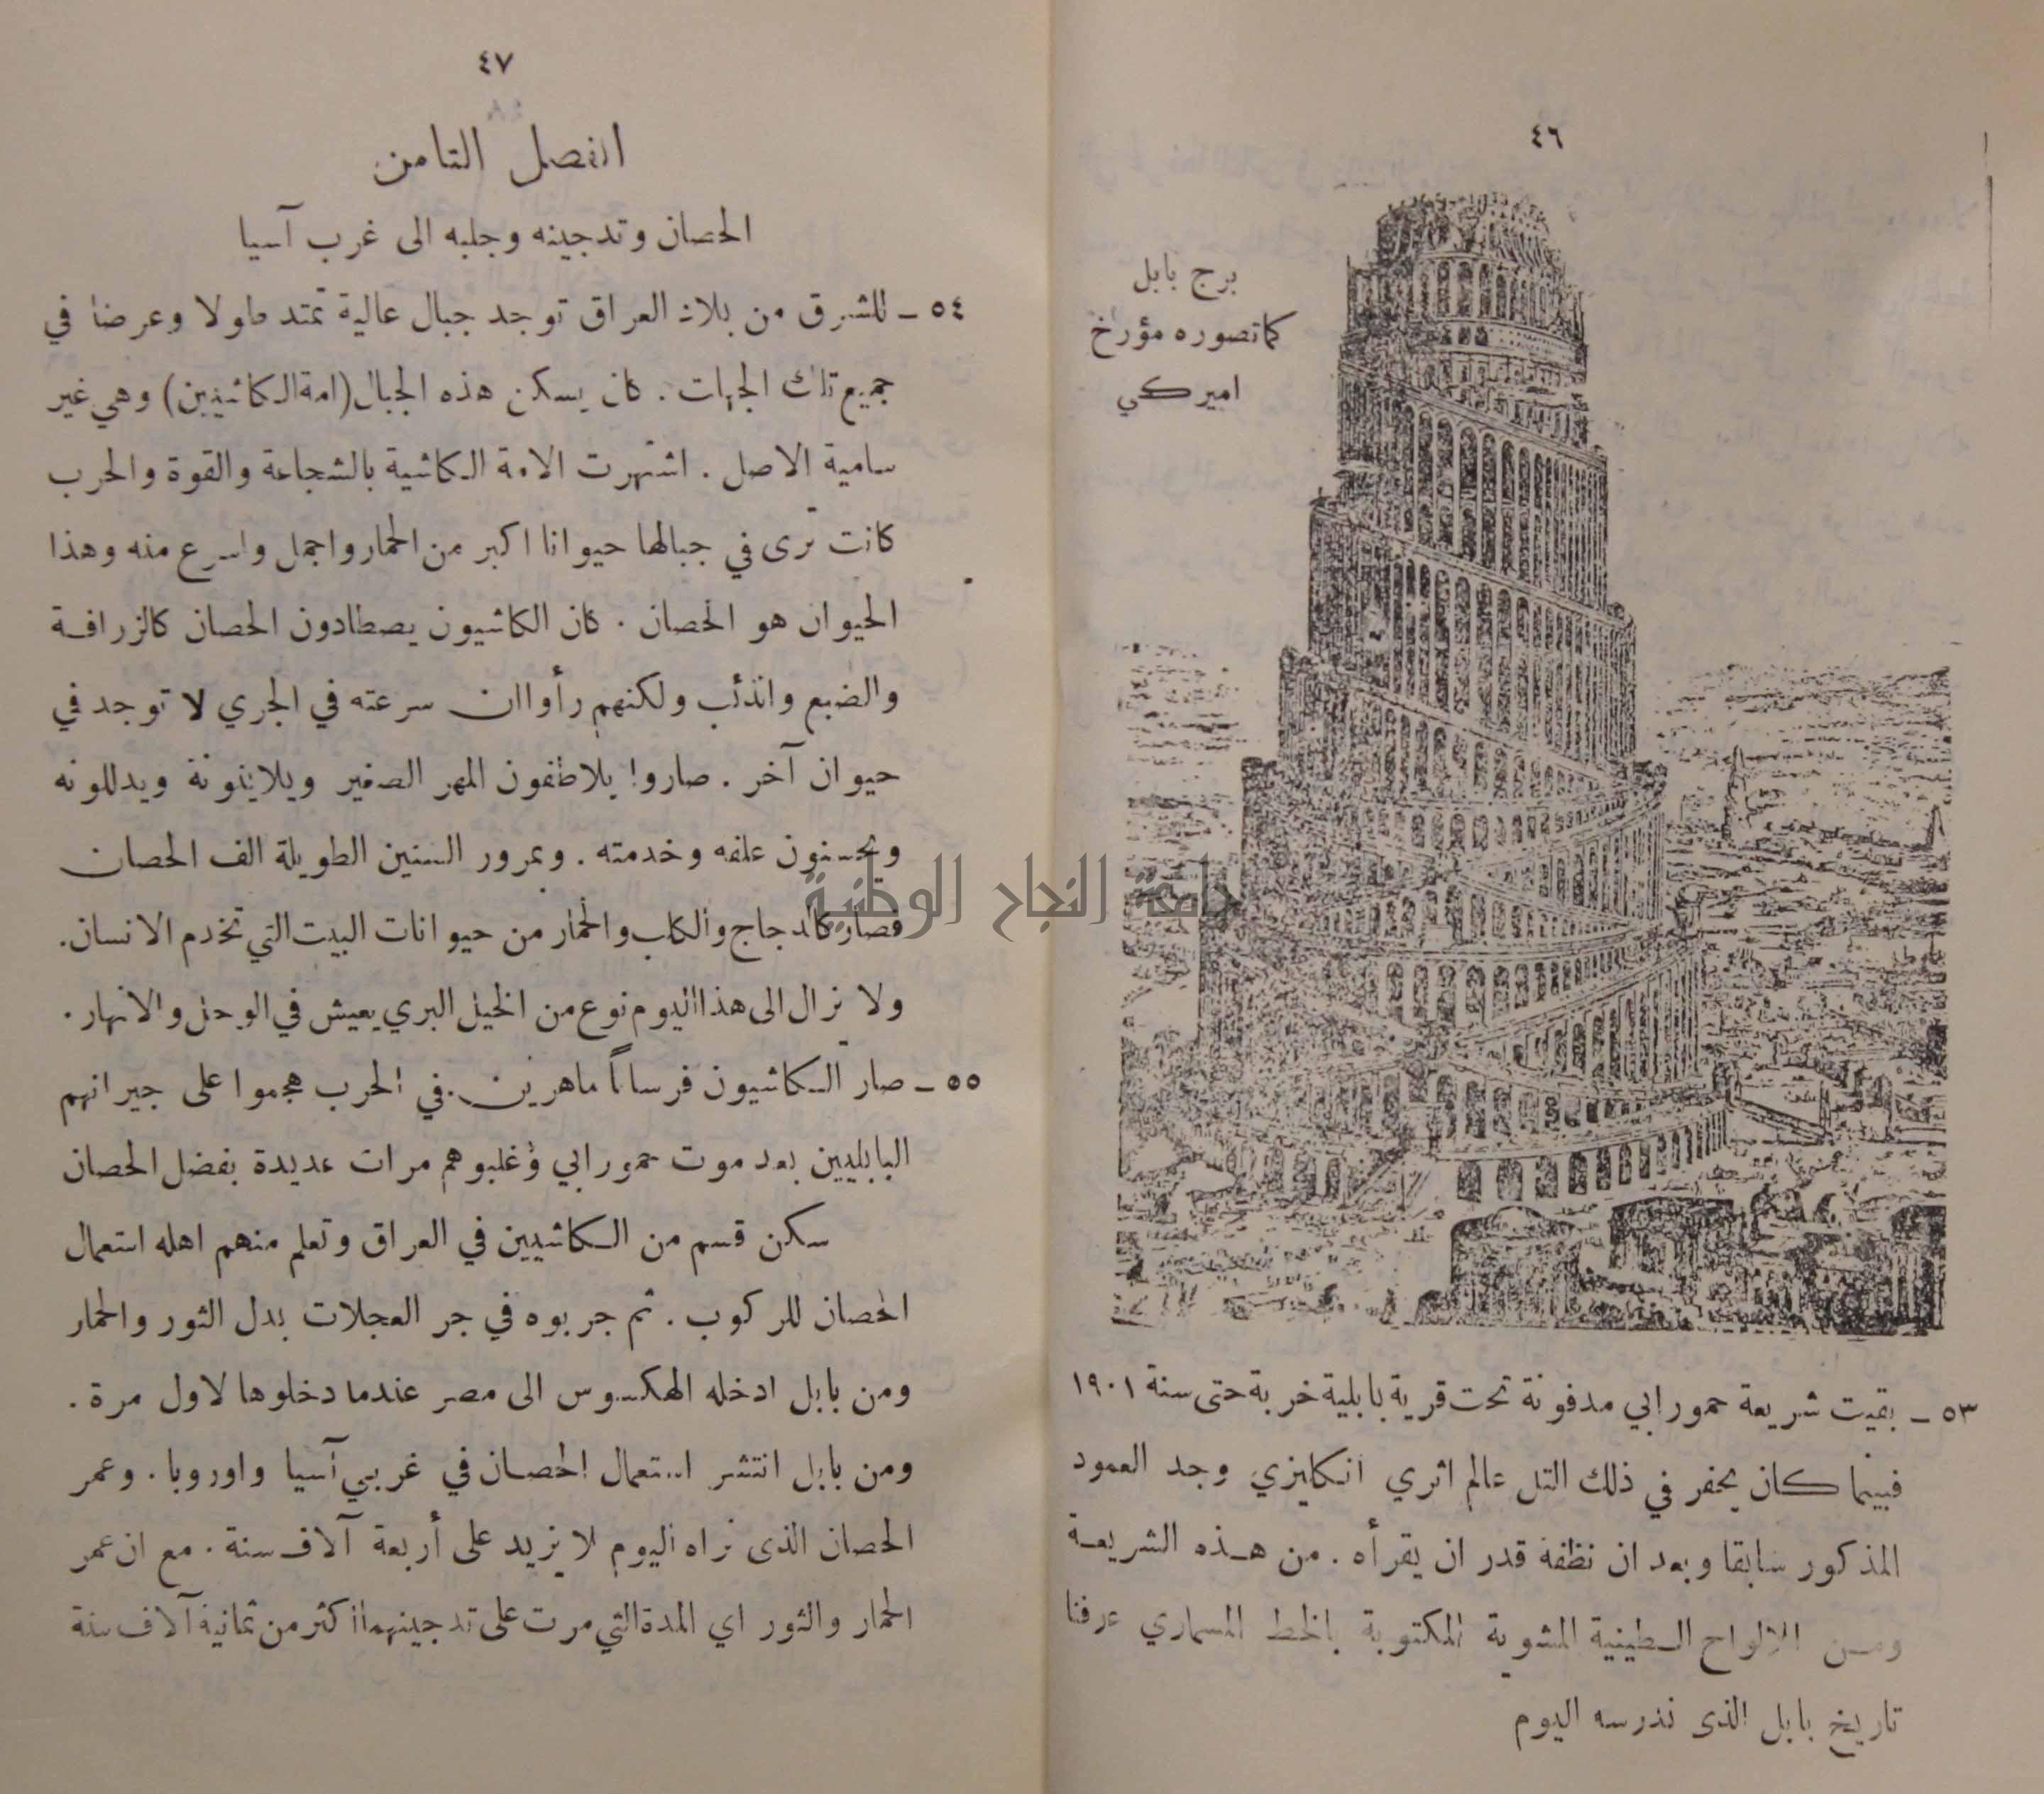 ٤٦
برج بابل
كما تصوره مؤرخ
اميركي
٥٣ ـ بقيت شريعة حمورابي مدفونة تحت قرية بابلية خربة حتى سنة ١٩٠١
فبينما كان يحفر في ذلك التل عالم اثري انكليزي وجد العمود
المذكور سابقا وبعد ان نظفه قدر ان يقرأه . من هذه الشريعة
ومن الالواح الطينية المشوية المكتوبة بالخط المسماري عرفنا
تاريخ بابل الذى ندرسه اليوم
٤٧
الفصل الثامن
الحصان وتدجينه وجلبه الى غرب آسيا
٥٤ ـ للشرق من بلاد العراق توجد جبال عالية تمتد طولا وعرضا في
جميع تلك الجهات . كان يسكن هذه الجبال (امة الكاشيين) وهي غير
سامية الاصل . اشتهرت الامة الكاشية بالشجاعة والقوة والحرب
كانت ترى في جبالها حيوانا اكبر من الحمار واجمل واسرع منه وهذا
الحيوان هو الحصان . كان الكاشيون يصطادون الحصان كالزرافة
والضبع والذئب ولكنهم رأوا ان سرعته في الجري لا توجد في
حيوان آخر . صاروا يلاطفون المهر الصغير ويلاينونة ويدللونه
ويحسنون علفه وخدمته . وبمرور السنين الطويلة الف الحصان
فصار كالدجاج والكلب والحمار من حيوانات البيت التي تخدم الانسان.
ولا يزال الى هذا اليوم نوع من الخيل البري يعيش في الوحل والانهار .
٥٥ ـ صار الكاشيون فرساناً ماهرين في الحرب هجموا على جيرانهم
البابليين بعد موت حمورابي وغلبوهم مرات عديدة بفضل الحصان
سكن قسم من الكاشيين في العراق وتعلم منهم اهله استعمال
الحصان للركوب . ثم جربوه في جر العجلات بدل الثور والحمار
ومن بابل ادخله الهكسوس الى مصر عندما دخلوها لاول مرة .
ومن بابل انتشر استعمال الحصان في غربي آسيا واوروبا . وعمر
الحصان الذى نراه اليوم لا يزيد على أربعة آلاف سنة . مع ان عمر
الحمار والثور اي المدة التي مرت على تدجينهما اكثر من ثمانية آلاف سنة
جامعة النجاح الوطنية